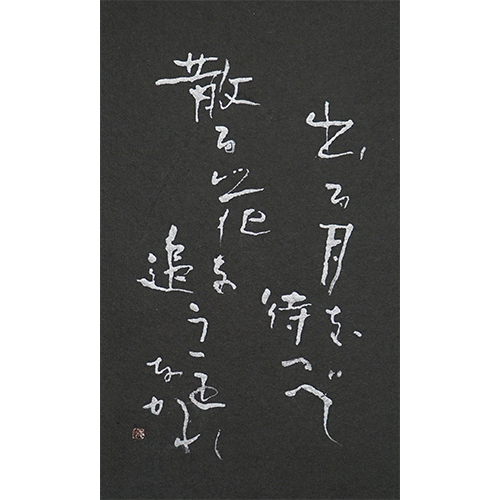 出る月を
待つべし
散る花を
追うこと
なかれ